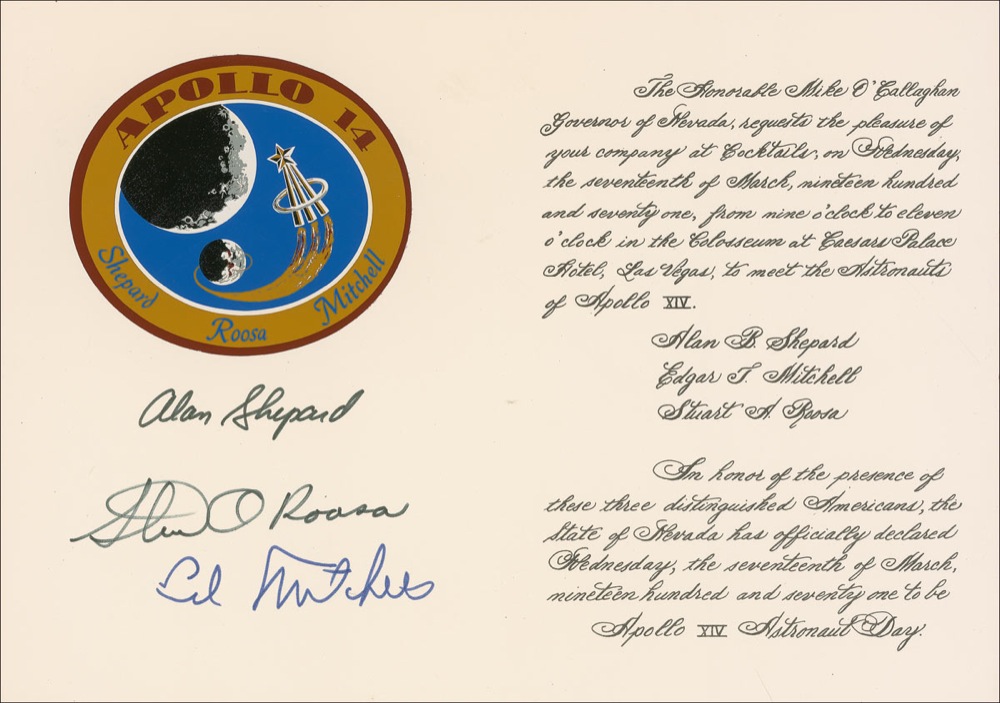 APOLLO 14
Shepard
Roosa
Mitchell
Alan Shepard
Stuart A Roosa
Ed Mitchell
The Honorable Mike O'Callaghan
Governor of Nevada, requests the pleasure of
your company at Cocktails, on Wednesday,
the seventeenth of March, nineteen hundred
and seventy one, from nine o'clock to eleven
o'clock in the Colosseum at Caesars Palace
Hotel, Las Vegas, to meet the Astronauts
of Apollo XIV.
Alan B. Shepard
Edgar T. Mitchell
Stuart A. Roosa
In honor of the presence of
these three distinguished Americans, the
State of Nevada has officially declared
Wednesday, the seventeenth of March,
nineteen hundred and seventy one to be
Apollo XIV Astronaut Day.